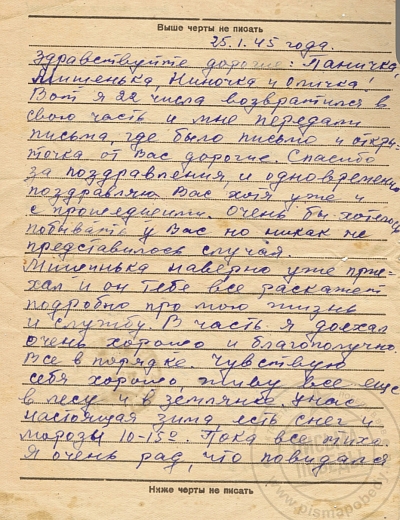 Выше черты не писать
25.1.45 года.
Здравствуйте дорогие: Паничка,
Мишенька, Ниночка и Оличка!
Вот я 22 числа возвратился в
свою часть и мне передали
письма, где было письмо и откры-
точка от Вас дорогие. Спасибо
за поздравления, и одновременно
поздравляю Вас хотя уже и
с прошедшими. Очень бы хотелось
побывать у Вас но никак не
представилось случая.
Мишинька наверно уже прие-
хал и он тебе все раскажет
подробно про мою жизнь
и службу. В часть я доехал
очень хорошо и благополучно.
Все в порядке. Чувствую
себя хорошо, живу все еще
в лесу и в землянке, у нас
настоящая зима есть снег и
морозы 10-15º. Пока все тихо.
Я очень рад, что повидался
Ниже черты не писать
www.pismapobe